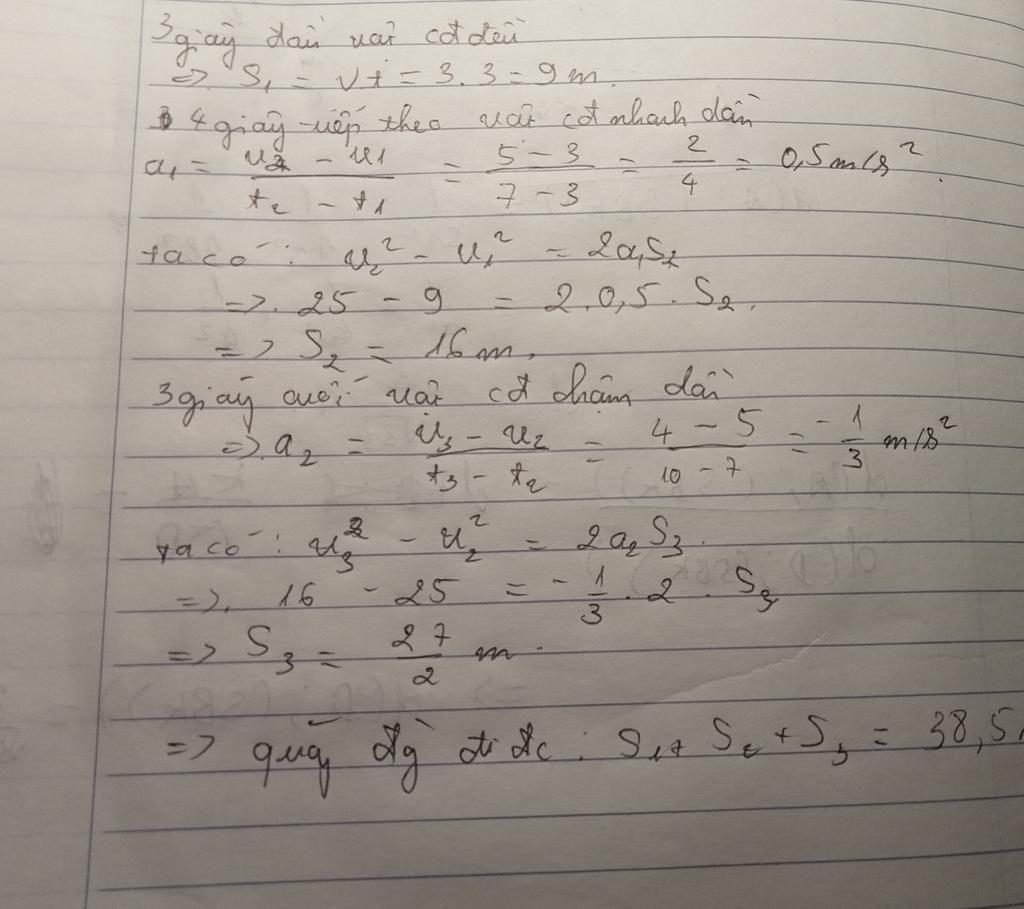 3 giây đầu vật cđ đều
=> S₁ = vt = 3.3 = 9 m.
4 giây tiếp theo vật cđ nhanh dần
a₁ = (v₂ - v₁)/(t₂ - t₁) = (5 - 3)/(7 - 3) = 2/4 = 0,5 m/s².
ta có: v₂² - v₁² = 2a₁S₂
=> 25 - 9 = 2.0,5.S₂.
=> S₂ = 16 m.
3 giây cuối vật cđ chậm dần
=> a₂ = (v₃ - v₂)/(t₃ - t₂) = (4 - 5)/(10 - 7) = -1/3 m/s²
ta có: v₃² - v₂² = 2a₂S₃.
=> 16 - 25 = -1/3.2.S₃
=> S₃ = 27/2 m.
=> quãg đg đi đc: S₁ + S₂ + S₃ = 38,5